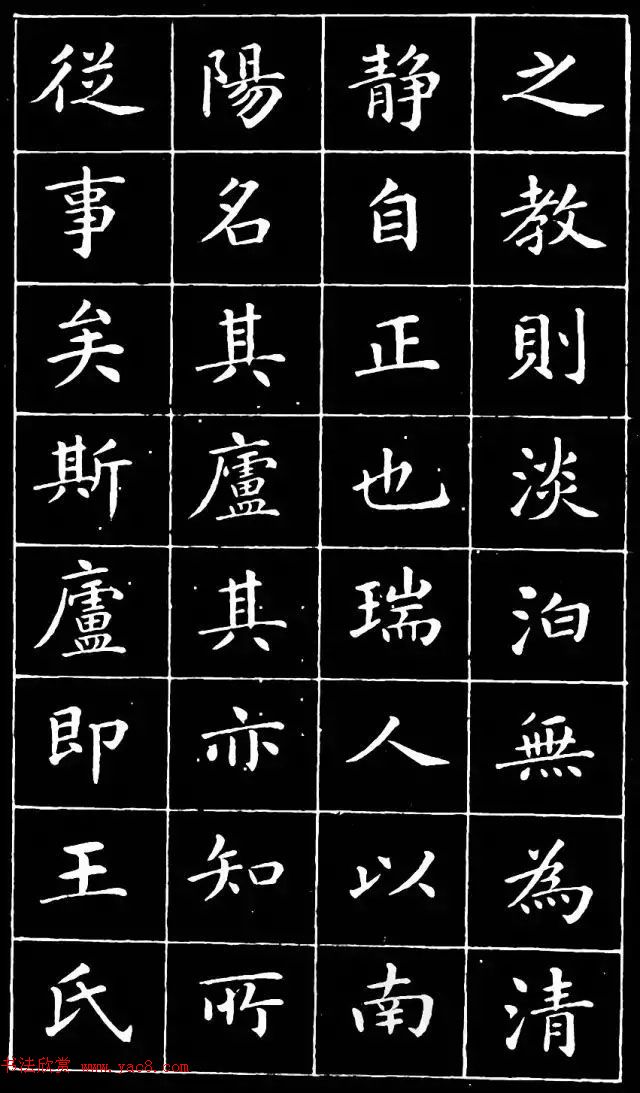 之教則淡泊無為清
静自正也瑞人以南
陽名其廬其亦知所
從事矣斯廬即王氏
书法欣赏 www.yac8.com